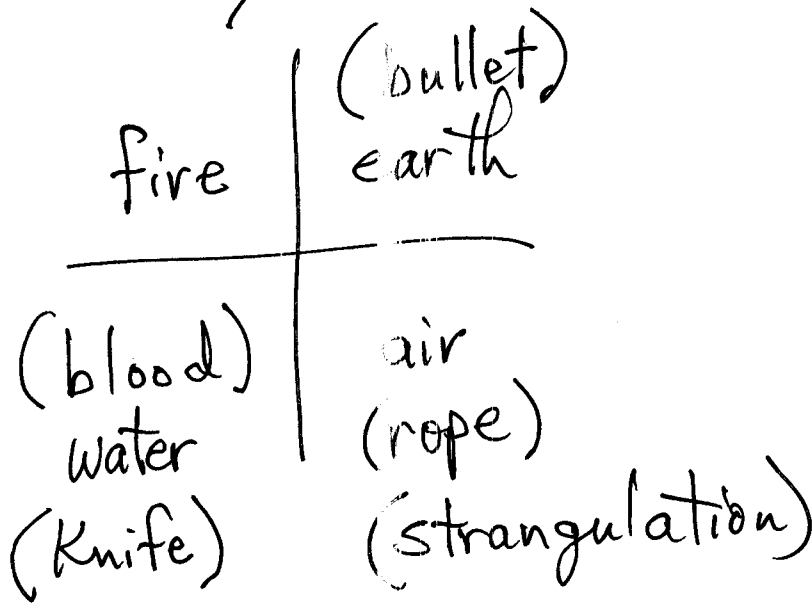 fire
(bullet)
earth
(blood)
water
(Knife)
air
(rope)
(strangulation)